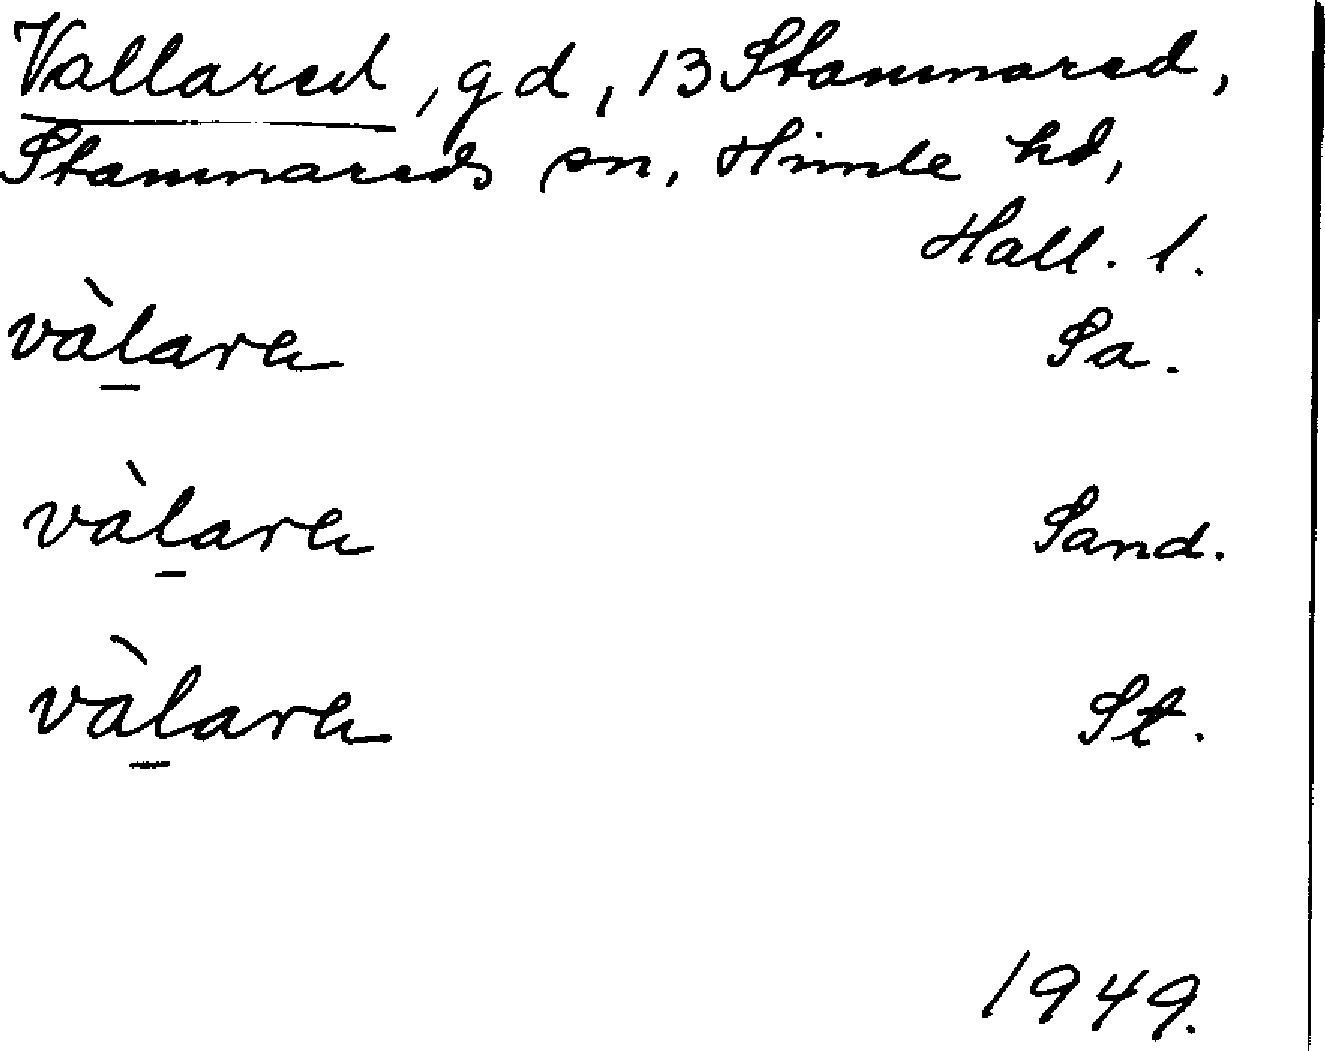 Vallared, gd, 13 Stamnared,
Stamnareds sn, Himle hd,
Hall. l.
vàlara Sa.
vàlara Sand.
vàlara St.
1949.